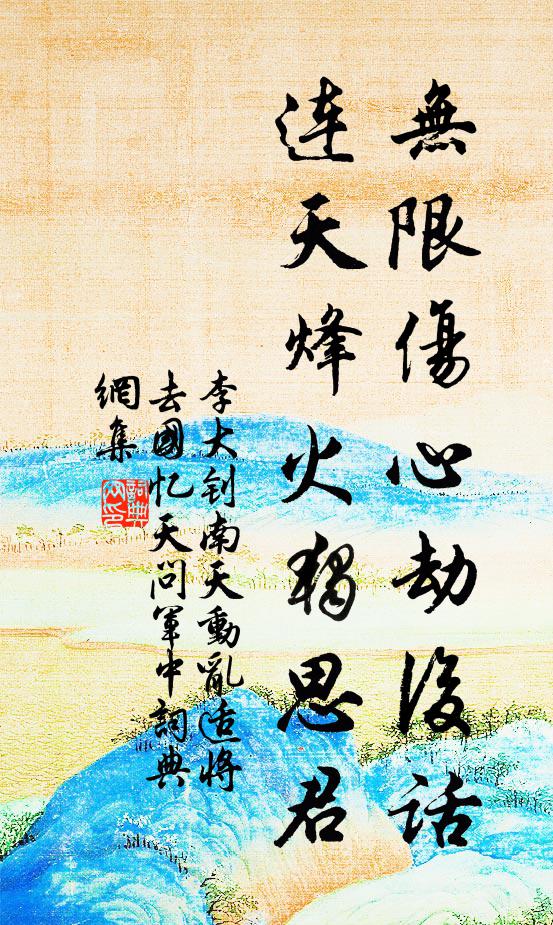 無限傷心劫後話
連天烽火獨思君
李大钊南天動亂適將
去國忆天问軍中詞典
網集